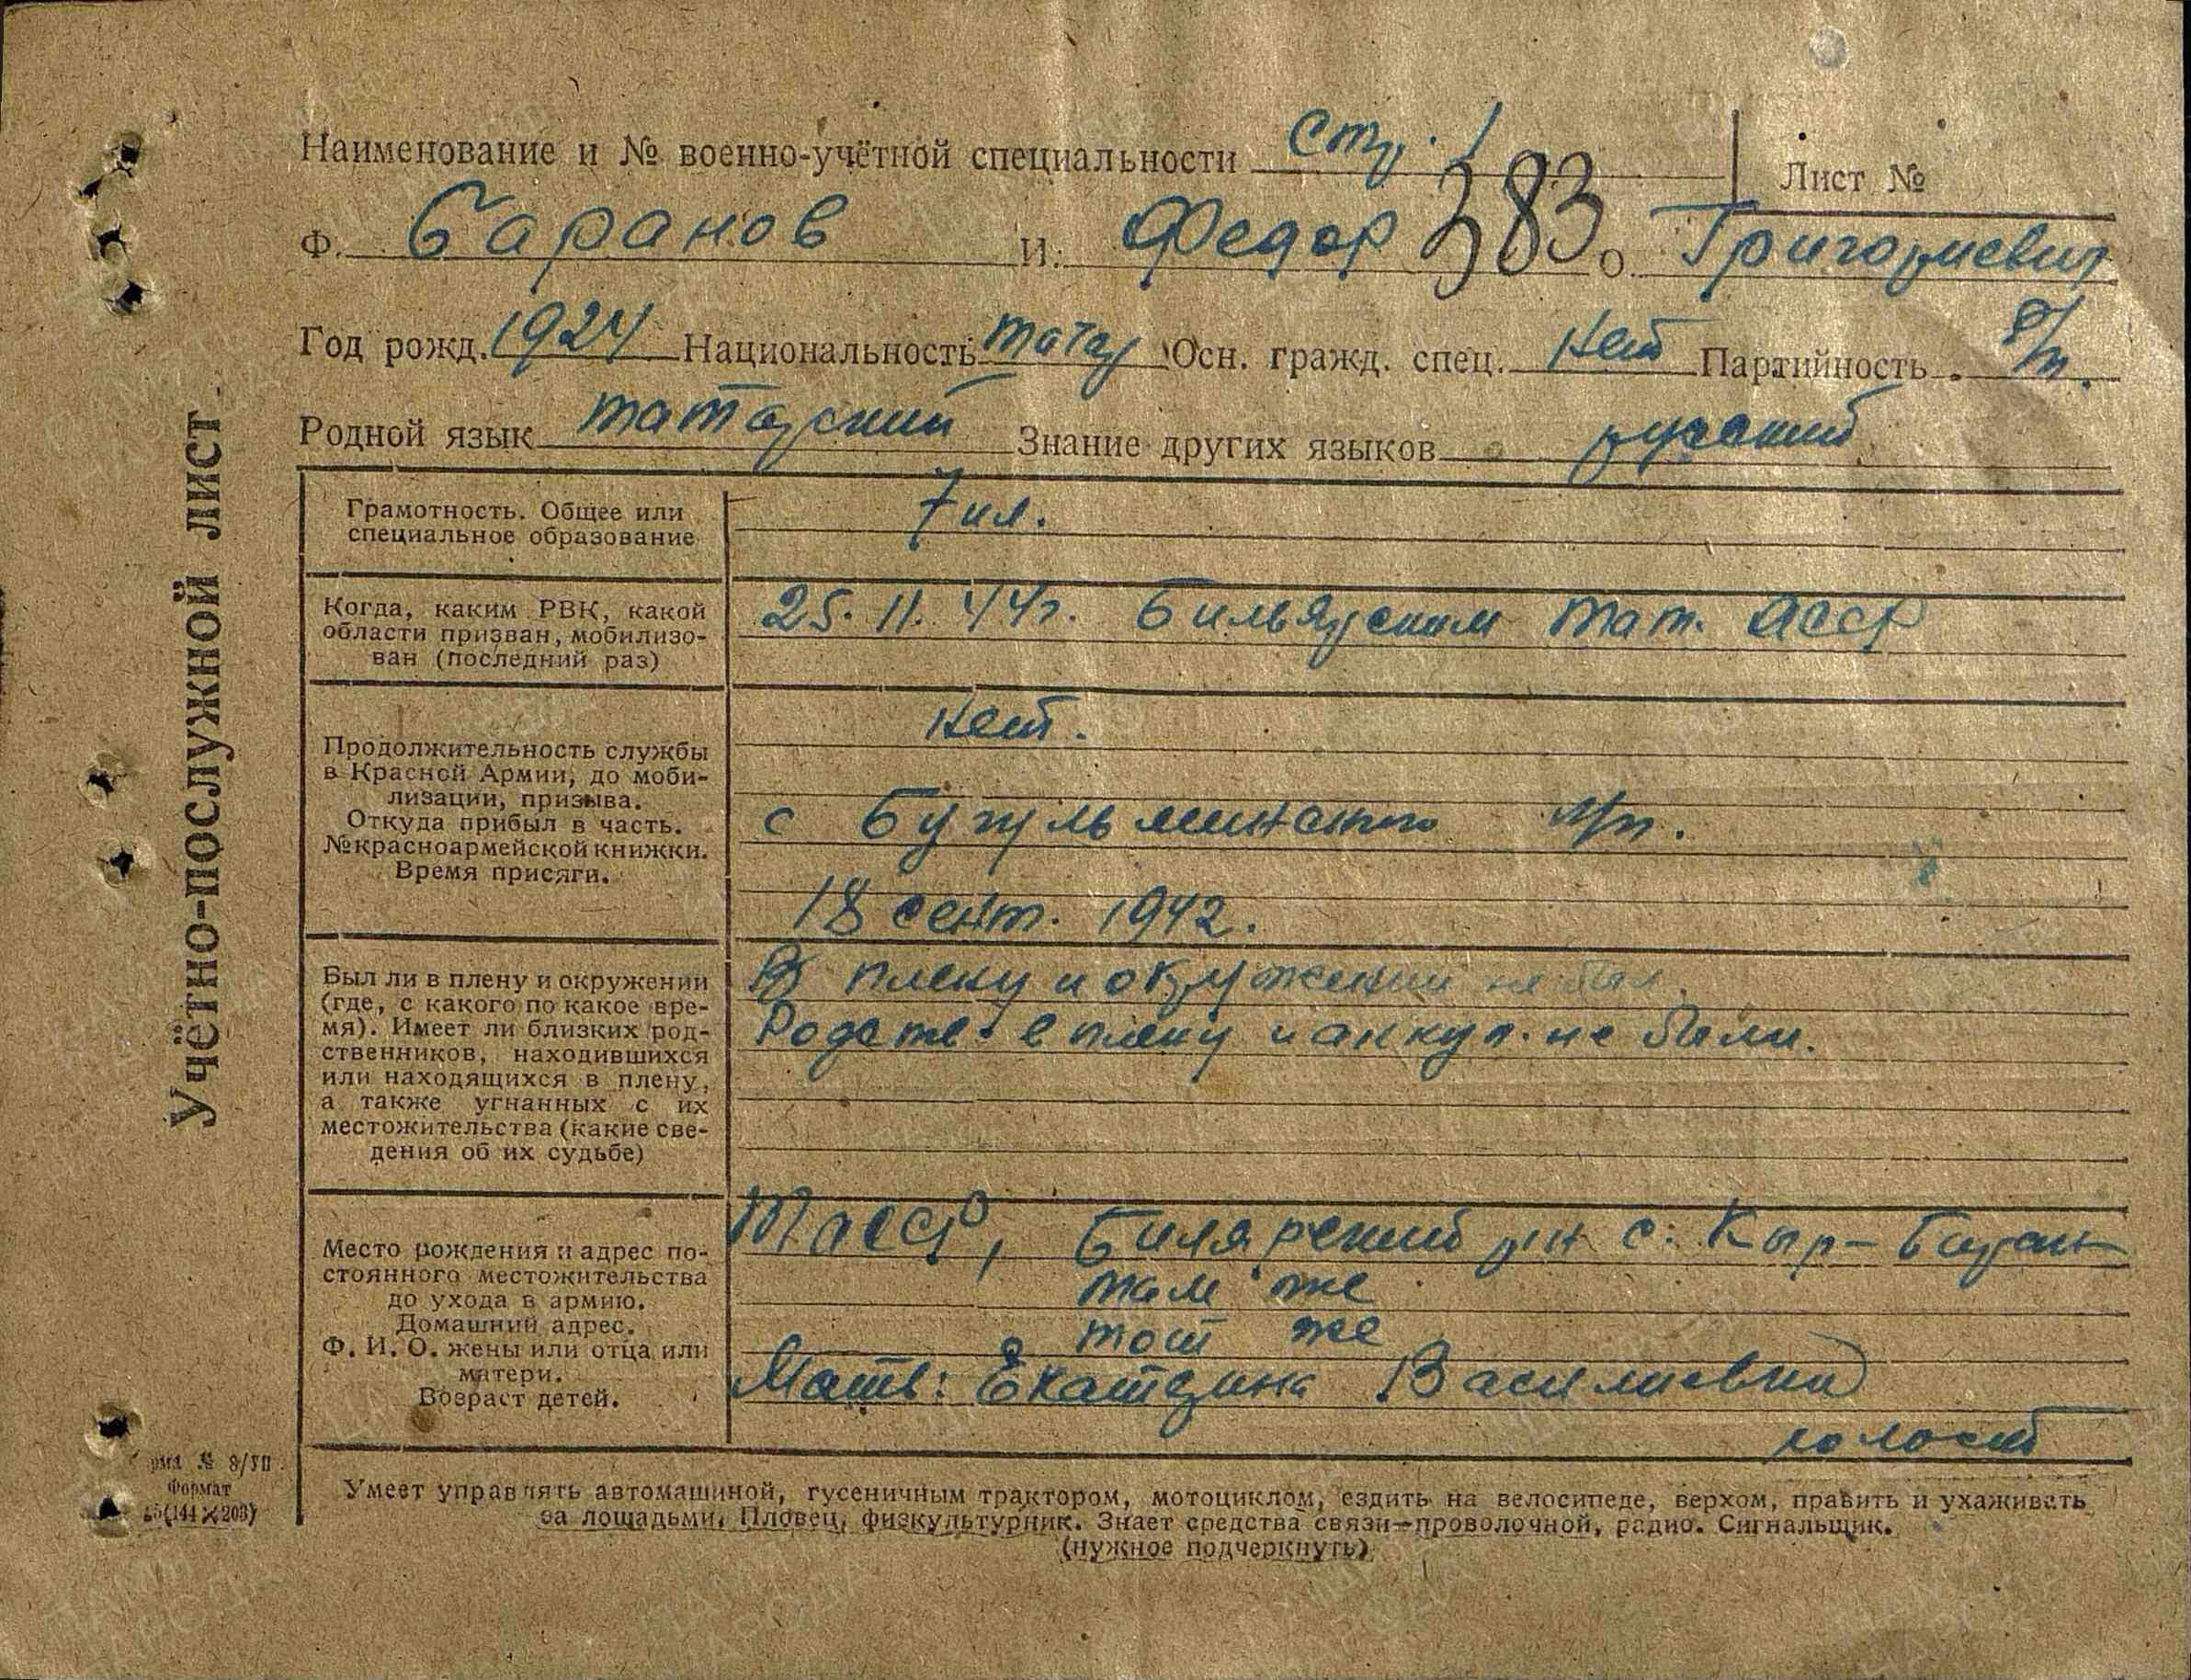 Наименование и № военно-учётной специальности Стр. 1 Лист №
383
Ф. Баранов И. Федор О. Григориевич
Год рожд. 1924 Национальность татар Осн. гражд. спец. Нет Партийность б/п.
Родной язык татарский Знание других языков русский
Учётно-послужной лист
Грамотность. Общее или
специальное образование
7 кл.
Когда, каким РВК, какой
области призван, мобилизо-
ван (последний раз)
25. 11. 44г. Бильярским Тат. АССР
Продолжительность службы
в Красной Армии, до моби-
лизации, призыва.
Откуда прибыл в часть.
№ красноармейской книжки.
Время присяги.
Нет.
с Бугульминского п/п.
18 сент. 1942.
Был ли в плену и окружении
(где, с какого по какое вре-
мя). Имеет ли близких род-
ственников, находившихся
или находящихся в плену,
а также угнанных с их
местожительства (какие све-
дения об их судьбе)
В плену и окружении не был.
Родств. в плену и анкуп. не были.
Место рождения и адрес по-
стоянного местожительства
до ухода в армию.
Домашний адрес.
Ф. И. О. жены или отца или
матери.
Возраст детей.
ТАССР, Билярский рн с. Кыр-Баран
там же
тот же
Мать: Екатерина Василиевна
холост
Форма № 8/УП
Формат
(144×203)
Умеет управлять автомашиной, гусеничным трактором, мотоциклом, ездить на велосипеде, верхом, править и ухаживать
за лощадьми. Пловец, физкультурник. Знает средства связи—проволочной, радио. Сигнальщик.
(нужное подчеркнуть)